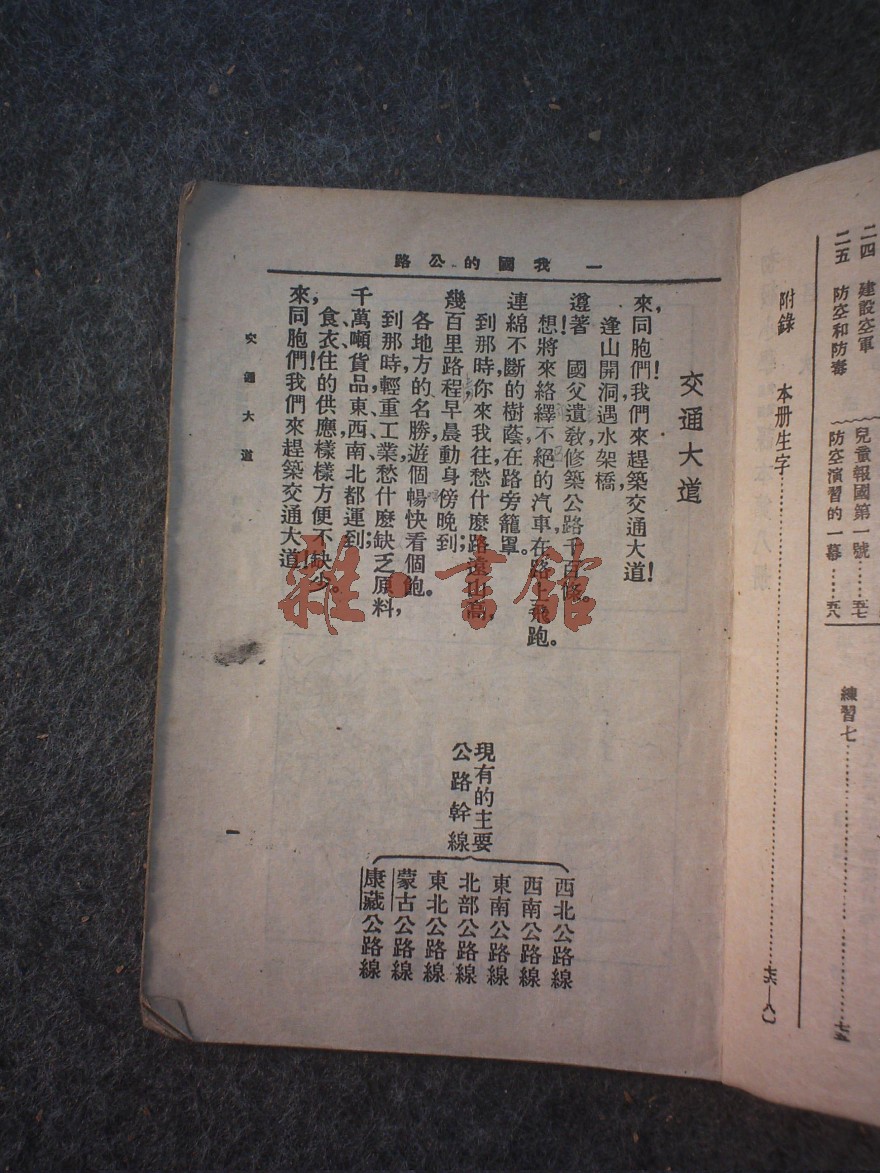 二四　建設空軍
二五　防空和防毒
兒童報國第一號……五七
防空演習的一幕……五八
練習七……七五
附錄　本册生字……七六—八〇
一　我國的公路
交通大道
來,同胞們!我們來趕築交通大道!
逢山開洞遇水架橋,
遵著　國父遺教修築公路千百條。
想將來絡繹不絕的汽車,在路上飛跑。
連綿不斷的樹蔭,在路旁籠罩。
到那時,你來我往,愁什麼路遠山高,
幾百里路程,早晨動身,傍晚到;
各地方的名勝,遊個暢快,看個飽。
到那時,輕重工業,愁什麼缺乏原料,
千、萬噸貨品,東、西、南、北都運到;
食衣住的供應,樣樣方便不缺少。
來,同胞們!我們來趕築交通大道!
現有的主要
公路幹線
西北公路線
西南公路線
東南公路線
北部公路線
東北公路線
蒙古公路線
康藏公路線
交通大道
一
雜·書館